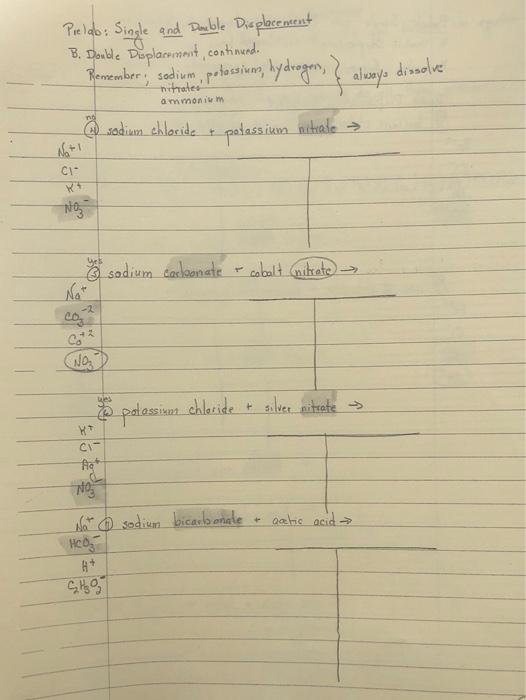 Prelab: Single and Double Displacement
B. Double Displacement, continued.
Remember: sodium, potassium, hydrogen, } always dissolve
nitrates
ammonium
no
④ sodium chloride + potassium nitrate →
Na+1
Cl-
K+
NO3-
yes
⑤ sodium carbonate + cobalt nitrate →
Na+
CO3-2
Co+2
NO3-
yes
⑥ potassium chloride + silver nitrate →
K+
Cl-
Ag+
NO3-
Na+ ⑦ sodium bicarbonate + acetic acid →
HCO3-
H+
C2H3O2-